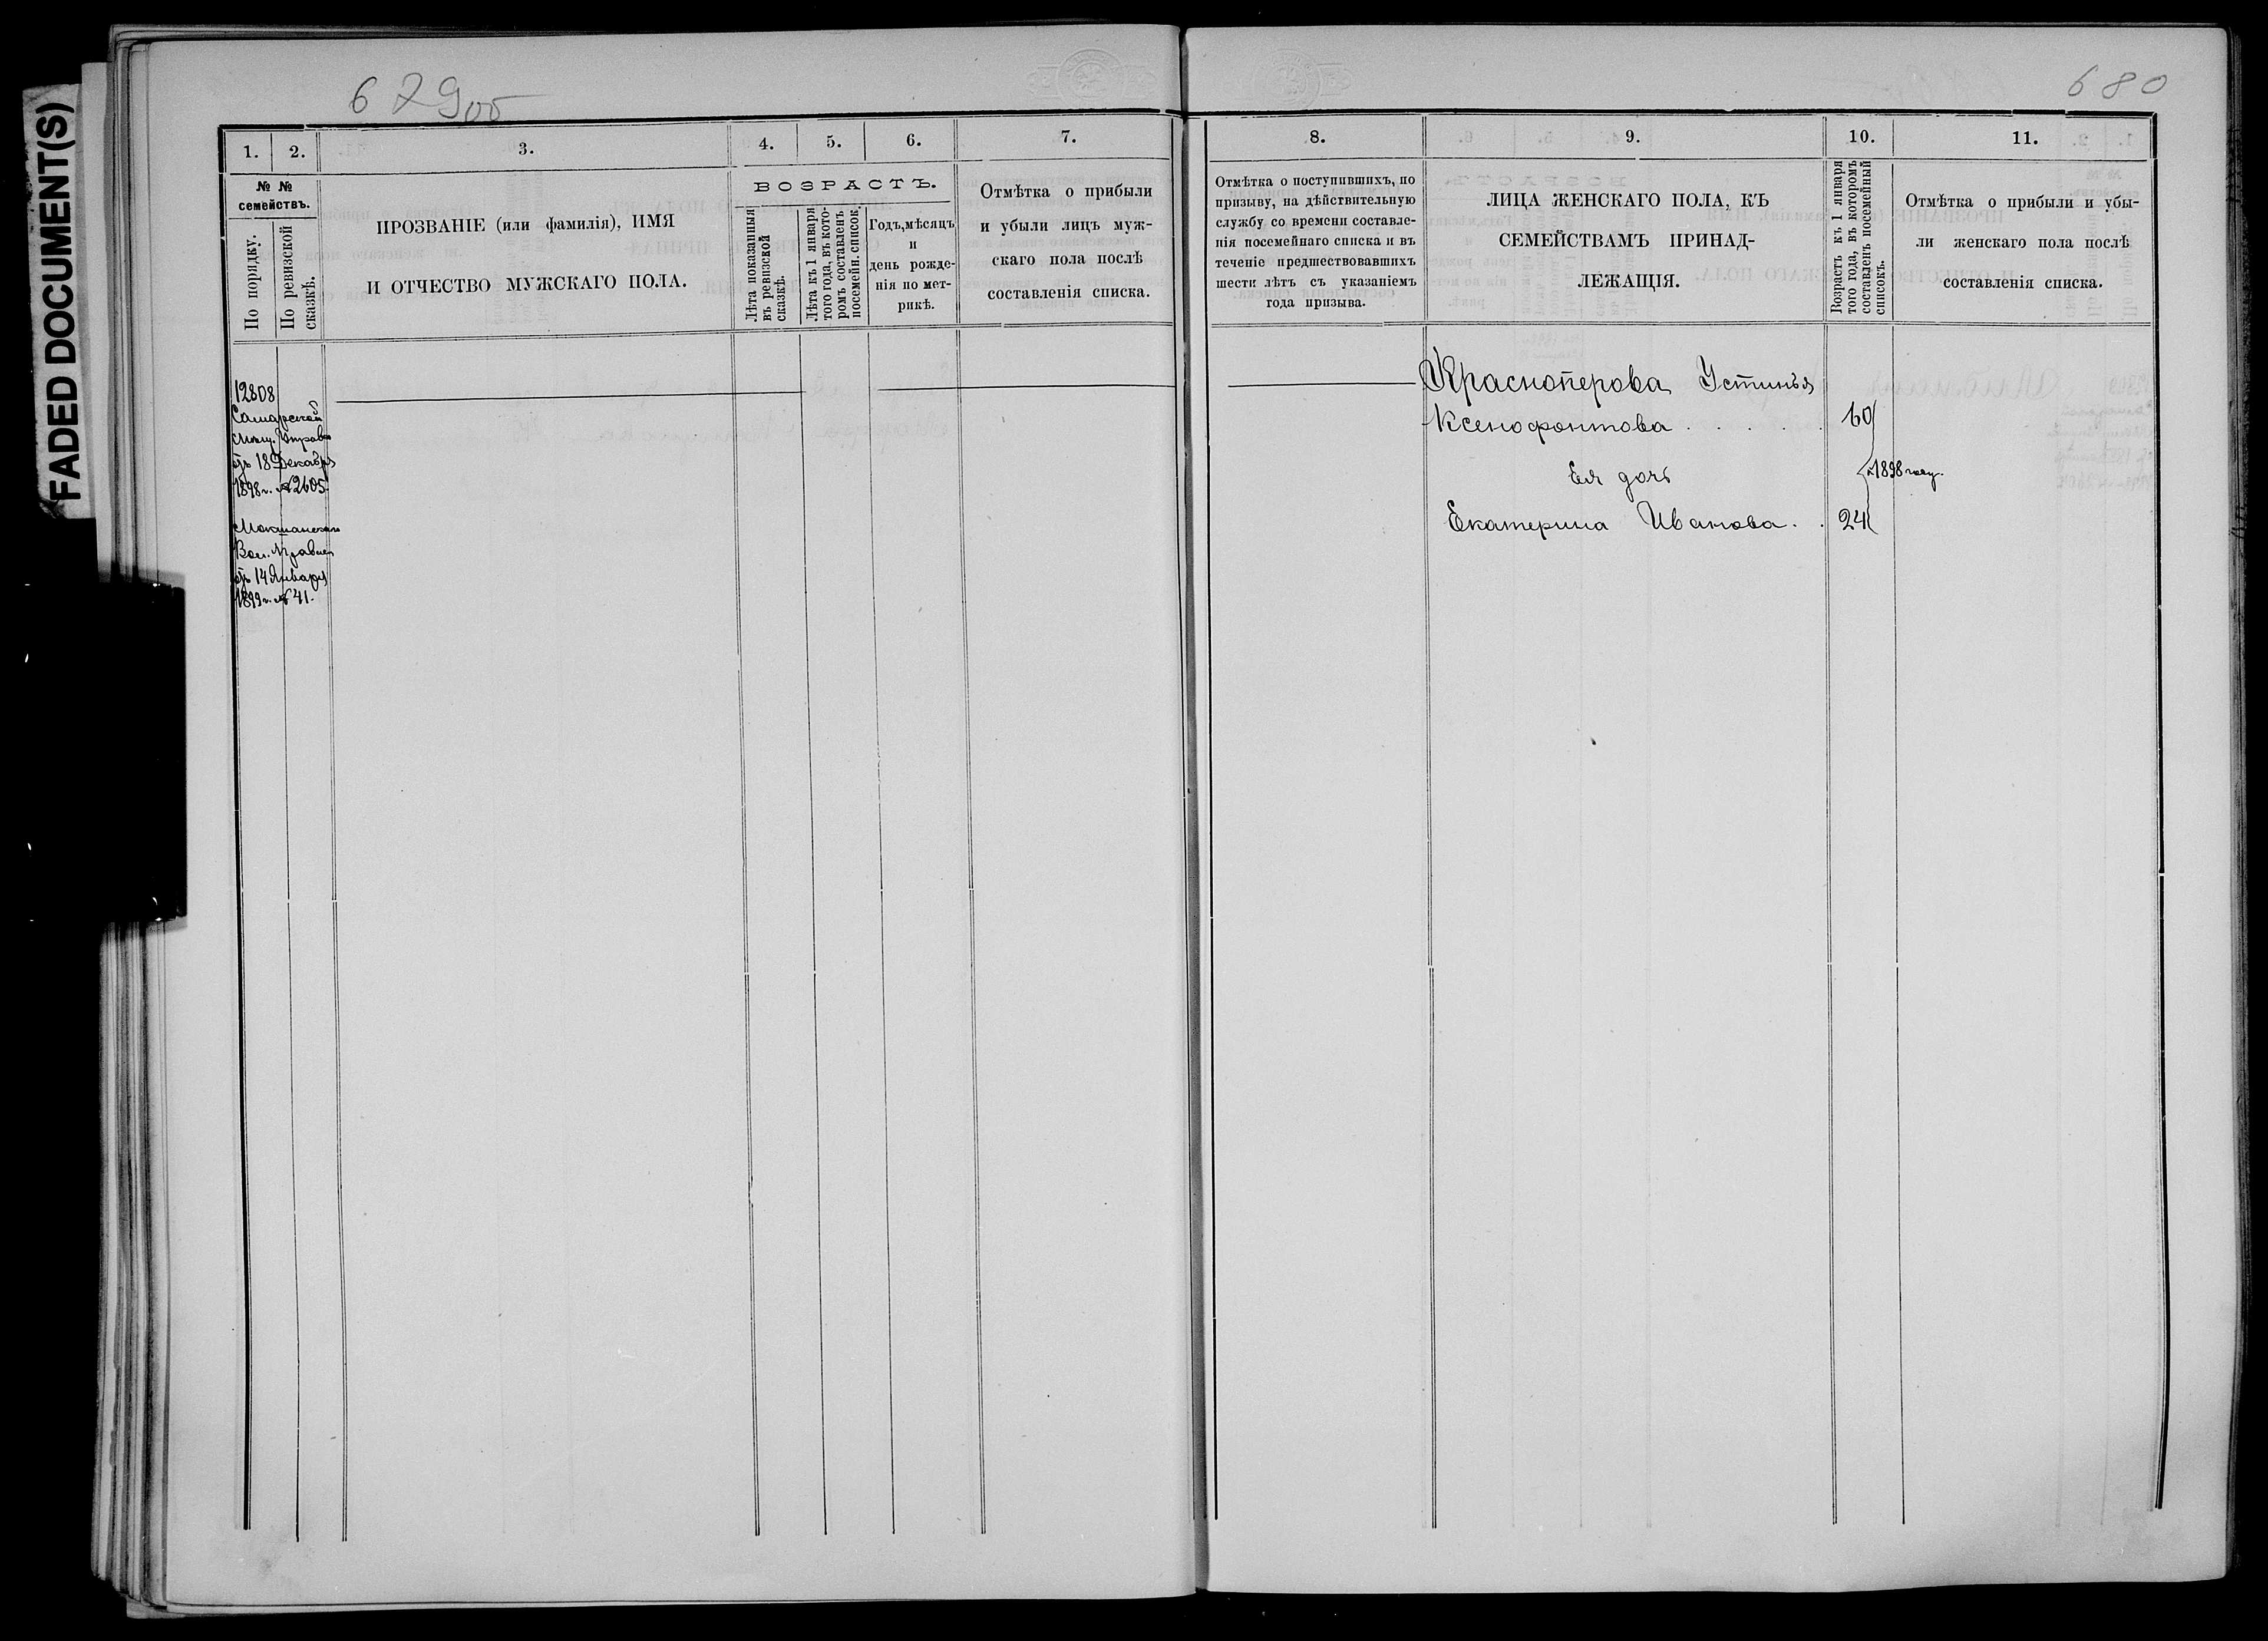 FADED DOCUMENT(S)
679об
1. 2. 3. 4. 5. 6. 7.
№ №
семействъ.
По порядку.
По ревизской
сказкѣ.
ПРОЗВАНІЕ (или фамилія), ИМЯ
И ОТЧЕСТВО МУЖСКАГО ПОЛА.
ВОЗРАСТЪ.
Лѣта показанныя
въ ревизской
сказкѣ.
Лѣта къ 1 января
того года, въ кото-
ромъ составленъ
посемейн. список.
Годъ, мѣсяцъ
и
день рожде-
нія по мет-
рикѣ.
Отмѣтка о прибыли
и убыли лицъ муж-
скаго пола послѣ
составленія списка.
12808
Самарской
Мѣщ. Управы
отъ 18 Декабря
1898 г. № 2605.
Вол. Правлен
отъ 14 Января
1899 г. № 41.
680
8. 9. 10. 11.
Отмѣтка о поступившихъ, по
призыву, на дѣйствительную
службу со времени составле-
нія посемейнаго списка и въ
теченіе предшествовавшихъ
шести лѣтъ съ указаніемъ
года призыва.
ЛИЦА ЖЕНСКАГО ПОЛА, КЪ
СЕМЕЙСТВАМЪ ПРИНАД-
ЛЕЖАЩІЯ.
Возрастъ къ 1 января
того года, въ которомъ
составленъ посемейный
списокъ.
Отмѣтка о прибыли и убы-
ли женскаго пола послѣ
составленія списка.
Красноперова Устинья
Ксенофонтова . . . . . 60
Ея дочь
в 1898 году.
Екатерина Иванова . . 24